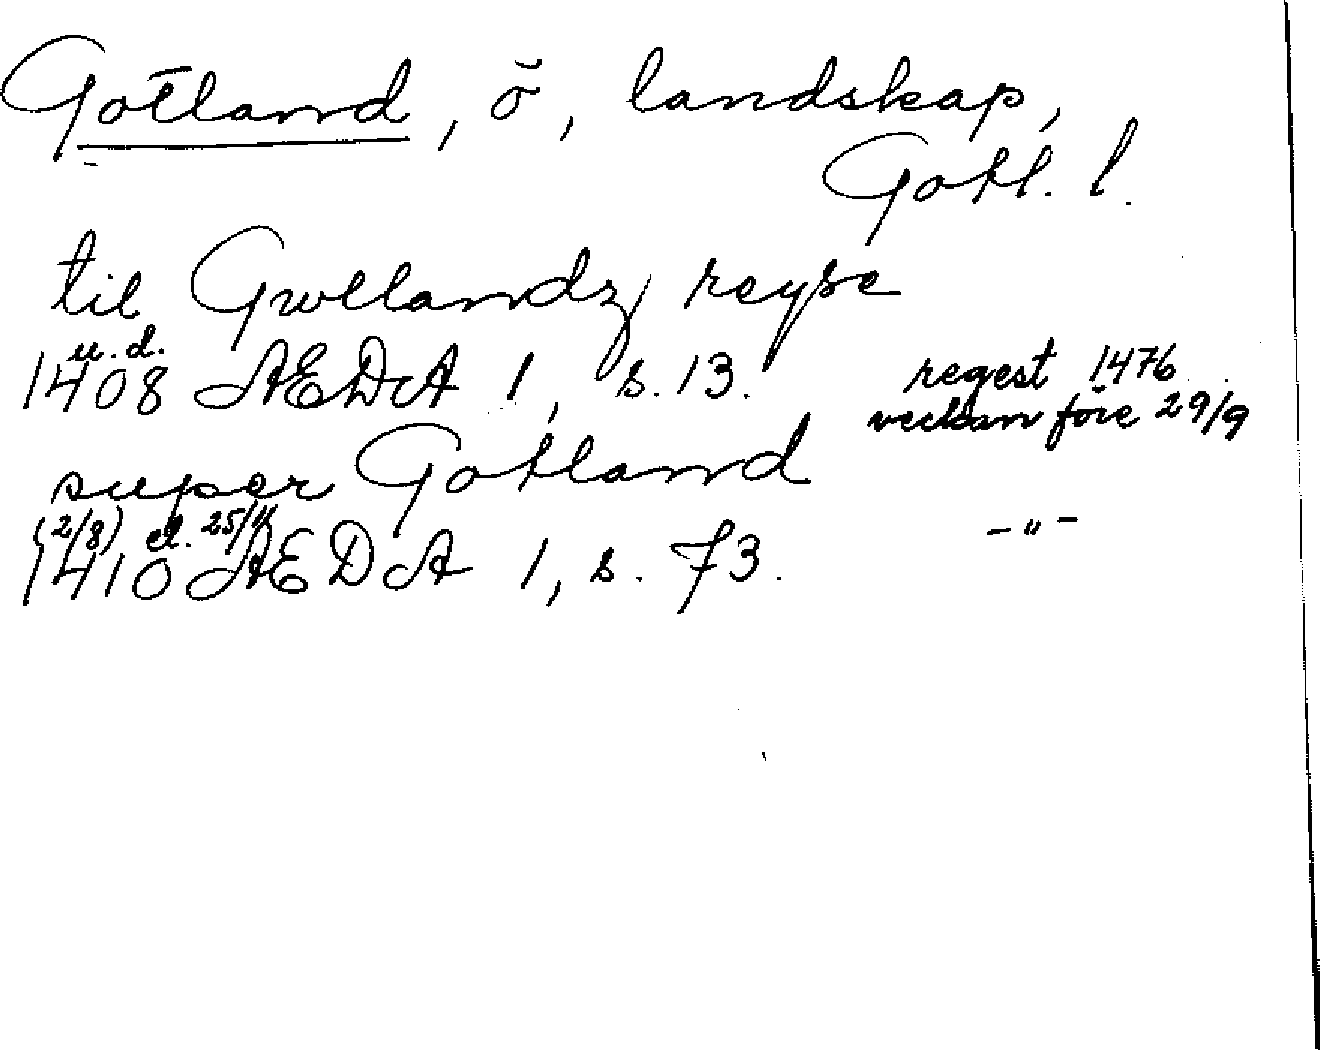 Gotland, ö, landskap,
Gotl. l.
til Gwllandz reyse
u. d.
1408 AEDA 1, s. 13. regest 1476
veckan före 29/9
super Gotland
(2/8) el. 25/11
1410 AEDA 1, s. 73. -"-